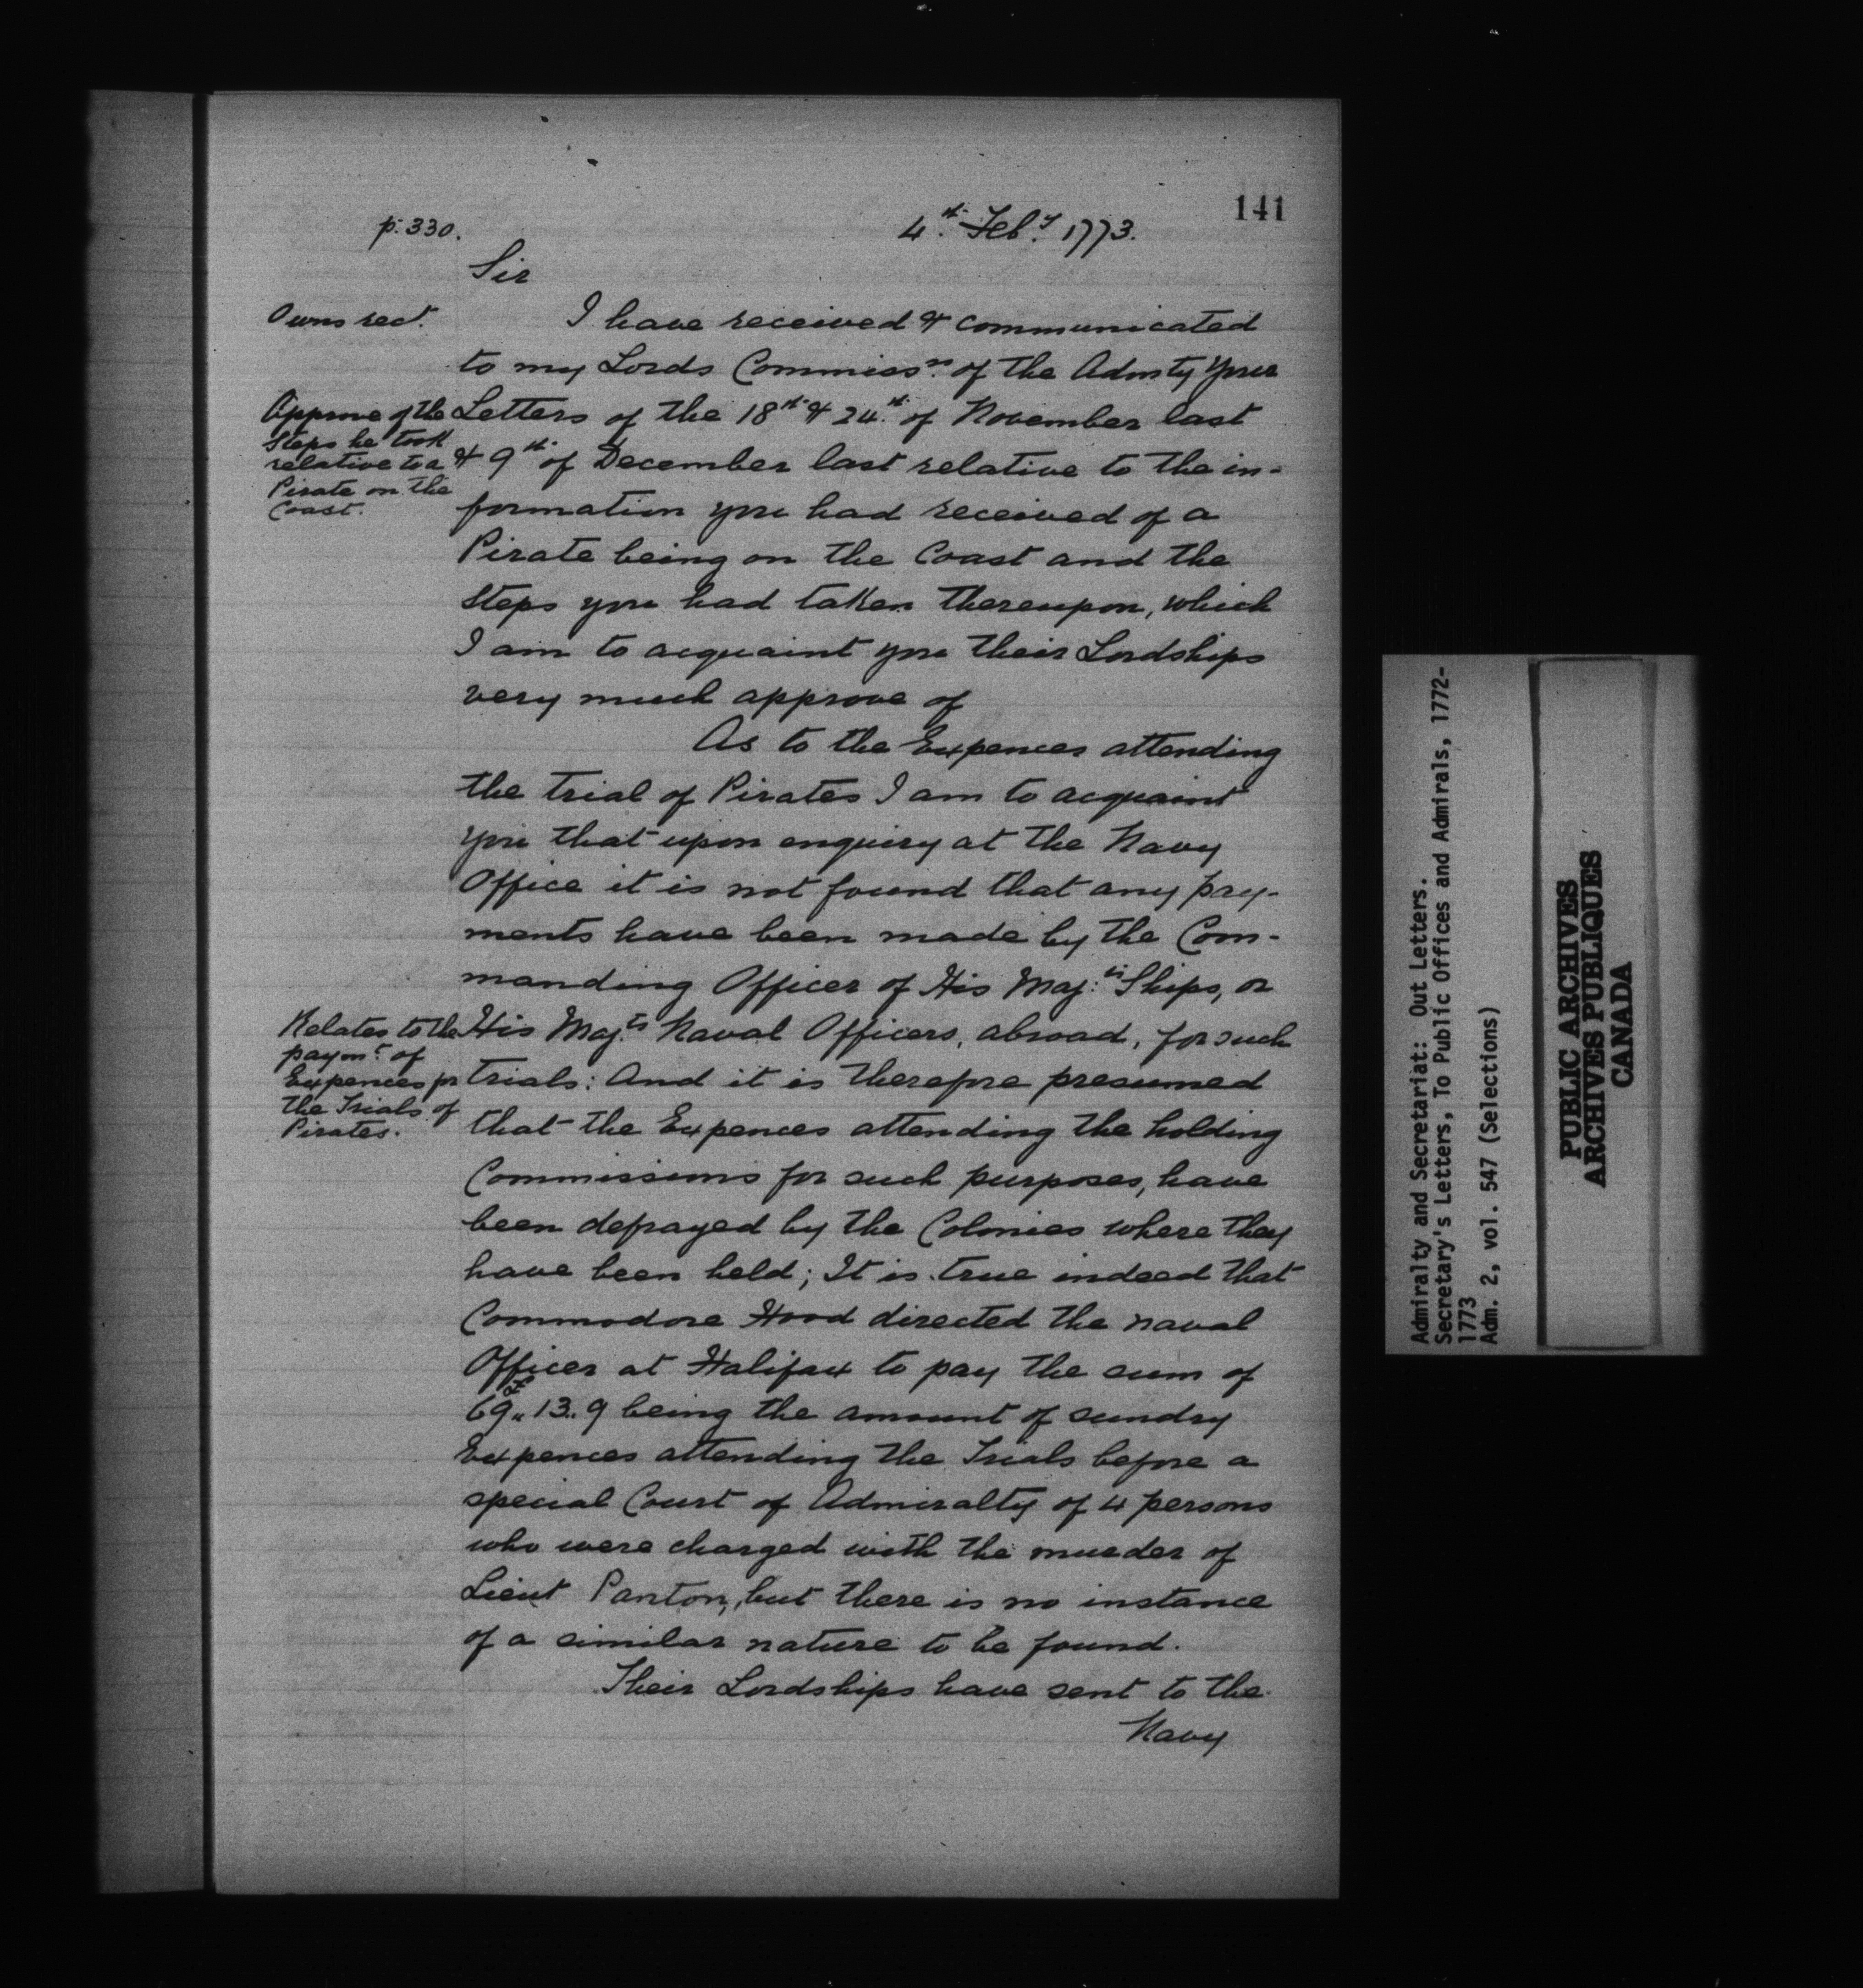 141
p. 330.
4th Feby 1773.
Sir
Owns rect.
I have received & communicated
to my Lords Commissrs of the Admty your
Approve of the
Steps he took
relative to a
Pirate on the
Coast.
Letters of the 18th & 24th of November last
& 9th of December last relative to the in-
formation you had received of a
Pirate being on the Coast and the
Steps you had taken thereupon, which
I am to acquaint you their Lordships
very much approve of
As to the Expences attending
the trial of Pirates I am to acquaint
you that upon enquiry at the Navy
Office it is not found that any pay-
ments have been made by the Com-
manding Officer of His Maj:ts Ships, or
Relates to the
paymt of
Expences for
the Trials of
Pirates.
His Maj.ts Naval Officers, abroad, for such
trials: And it is therefore presumed
that the Expences attending the holding
Commissions for such purposes, have
been defrayed by the Colonies where they
have been held; It is true indeed that
Commodore Hood directed the naval
Officer at Halifax to pay the sum of
£69.. 13.. 9 being the amount of sundry
Expences attending the Trials before a
special Court of Admiralty of 4 persons
who were charged with the murder of
Lieut Panton, but there is no instance
of a similar nature to be found.
Their Lordships have sent to the
Navy
Admiralty and Secretariat: Out Letters.
Secretary's Letters, To Public Offices and Admirals, 1772-
1773
Adm. 2, vol. 547 (Selections)
PUBLIC ARCHIVES
ARCHIVES PUBLIQUES
CANADA